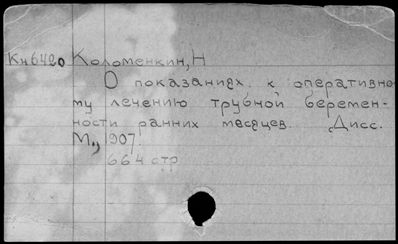 Кч6420 Коломенкин, Н
О показаниях к оперативно-
му лечению трубной беремен-
ности ранних месяцев. Дисс.
М., 1907.
664 стр